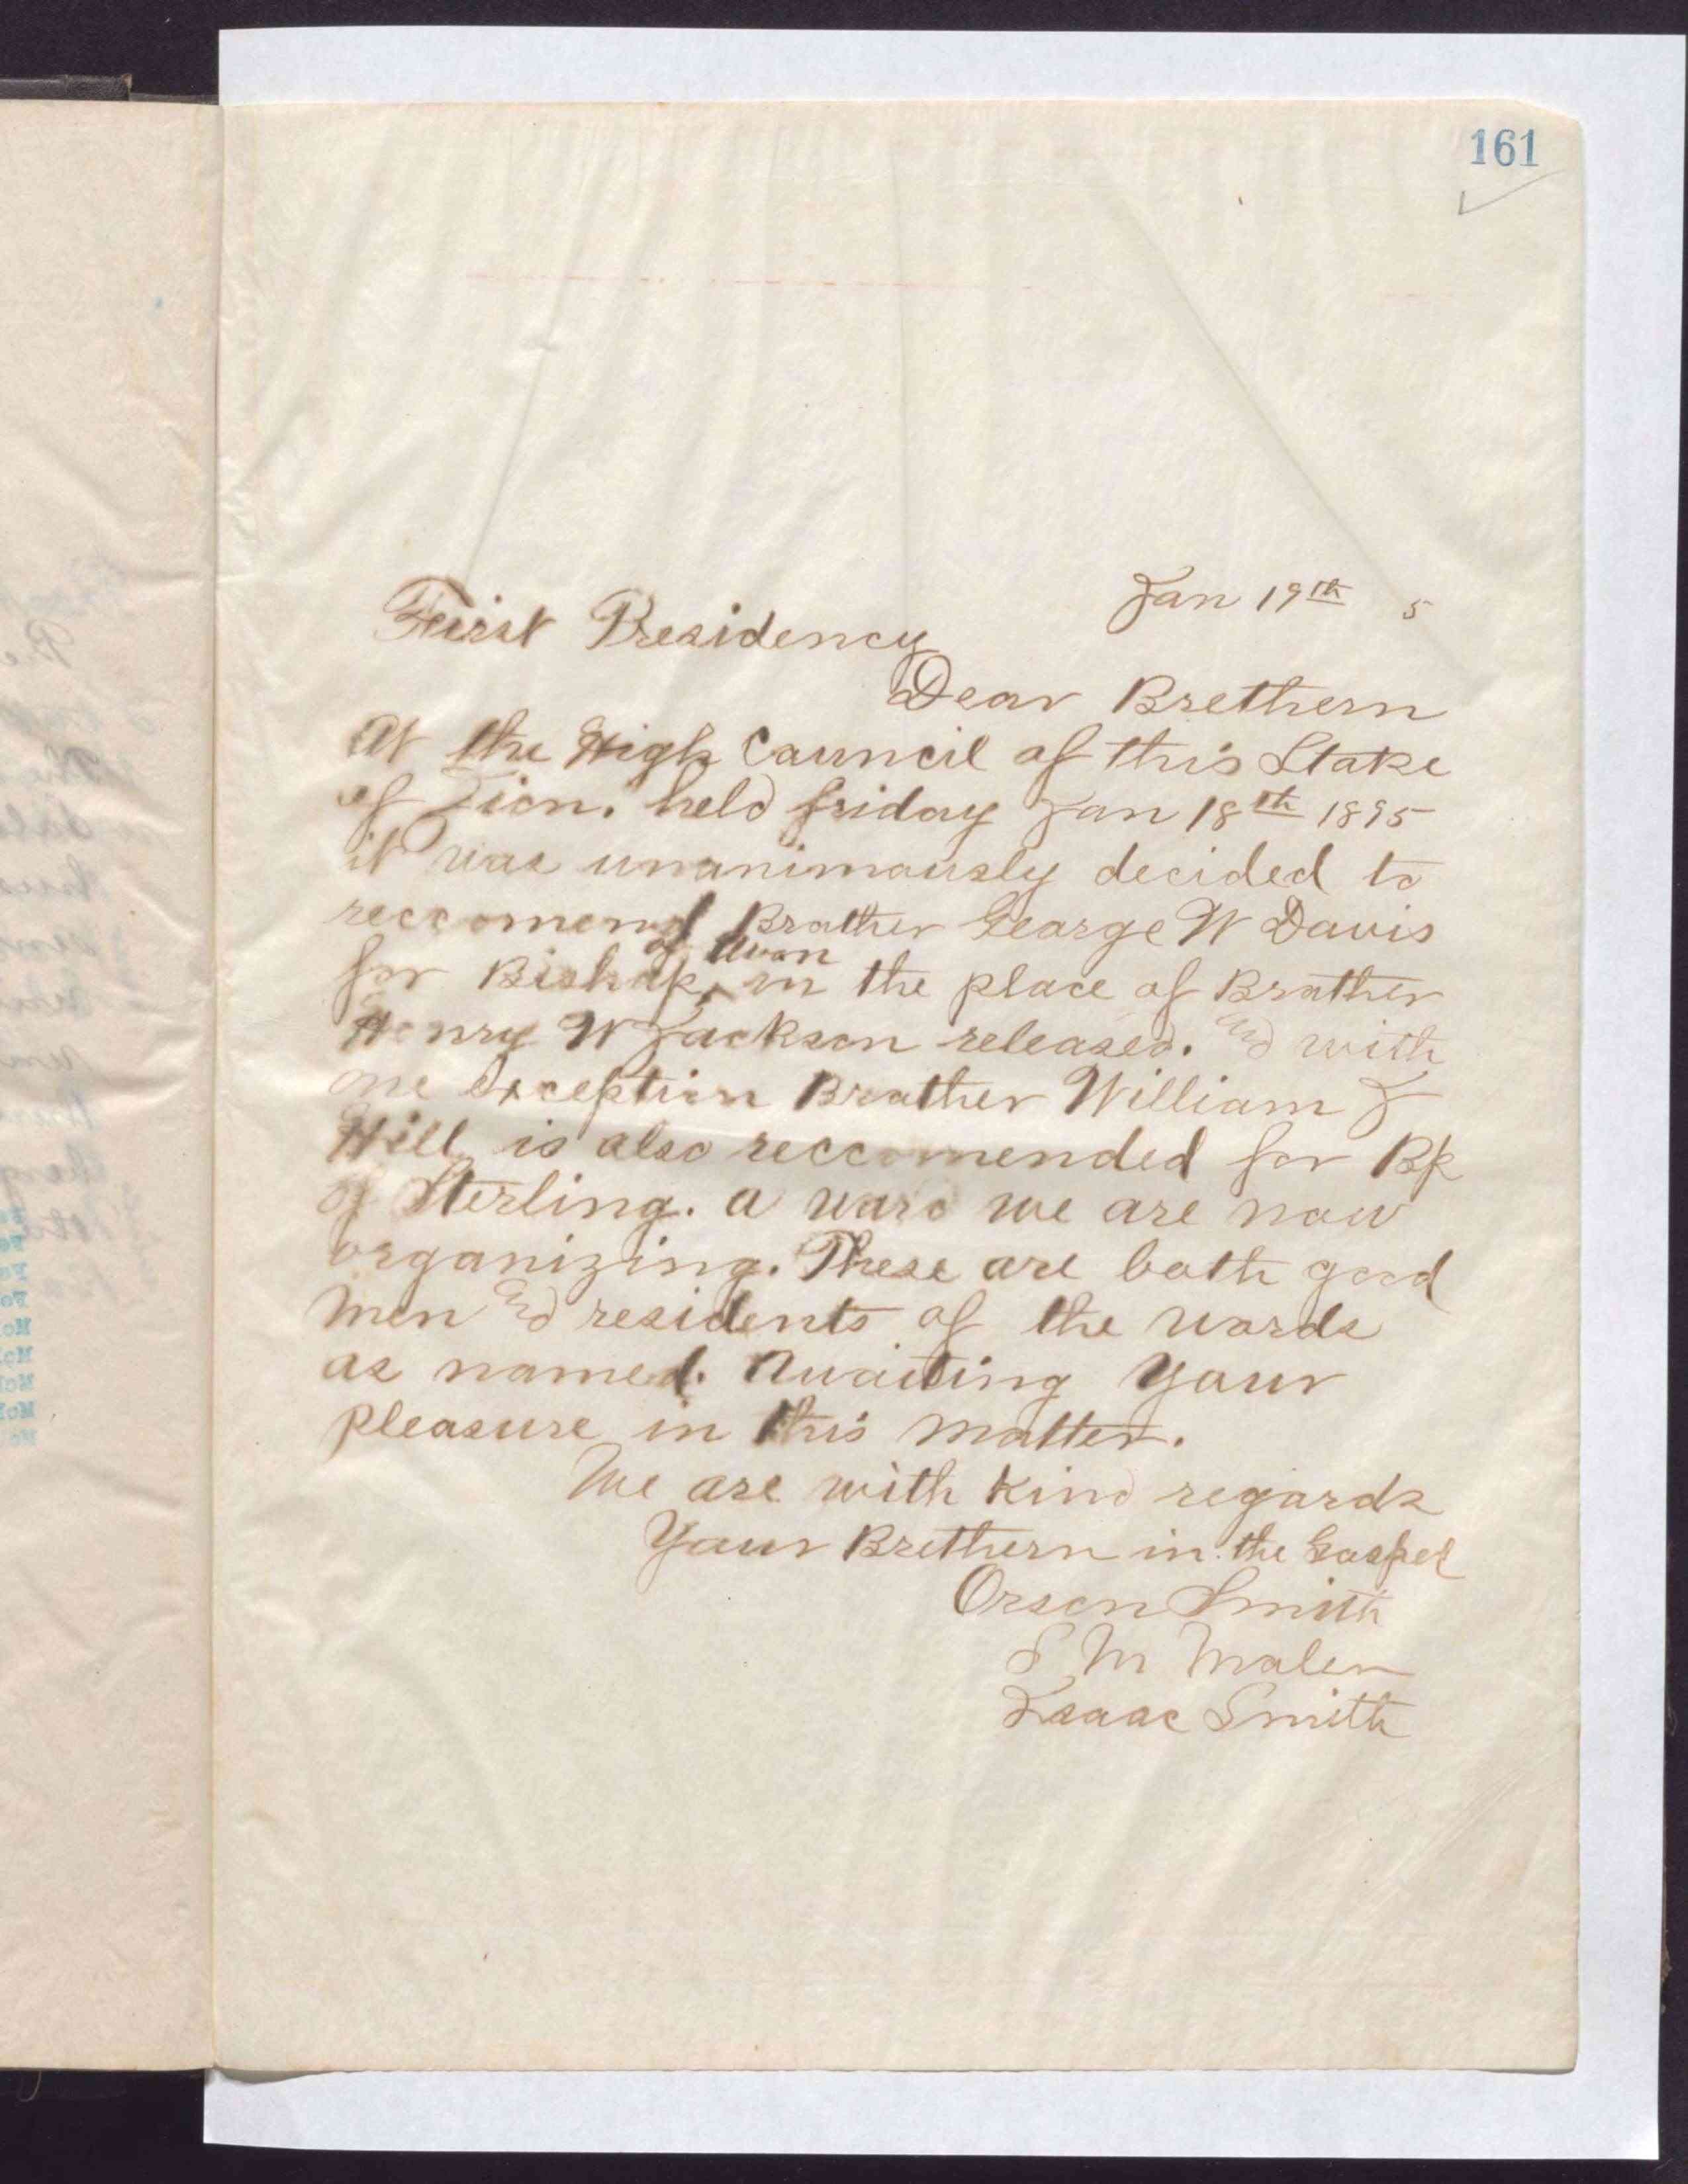 161
Jan 19th 5
First Presidency
Dear Brethern
At the High Council of this Stake
of Zion. held friday Jan 18th 1895
it was unanimously decided to
reccomend Brother George W Davis
of Avon
for Bishop ^ in the place of Brother
Henry W Jackson released. and with
one exception Brother William J
Hill is also reccomended for Bp
of Sterling. a ward we are now
organizing. These are both good
men and residents of the wards
as named. Awaiting your
pleasure in this matter.
We are with kind regards
Your Brethern in the Gospel
Orson Smith
S M Molen
Isaac Smith